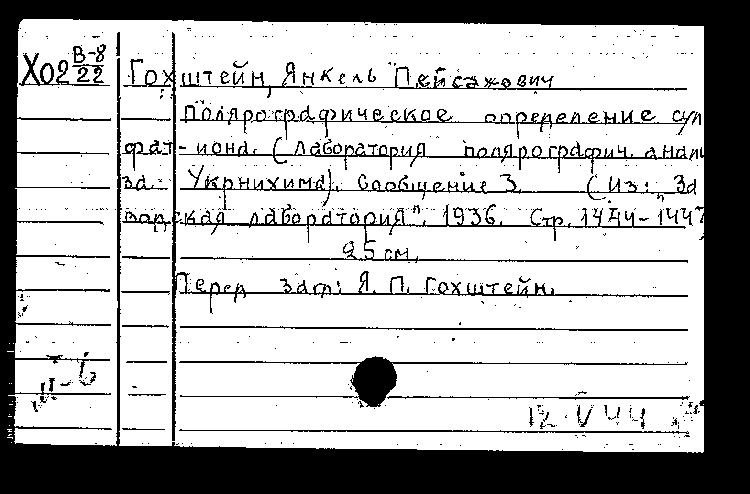 Х02 В-8/22 Гохштейн, Янкель Пейсахович
Полярографическое определение суль
фат-иона. (Лаборатория полярографич. анали
за Укрнихима). Сообщение 3. (Из: "За
водская лаборатория". 1936. Стр. 1444-1447
25 см.
Перед загл: Я. П. Гохштейн.
12 V 44